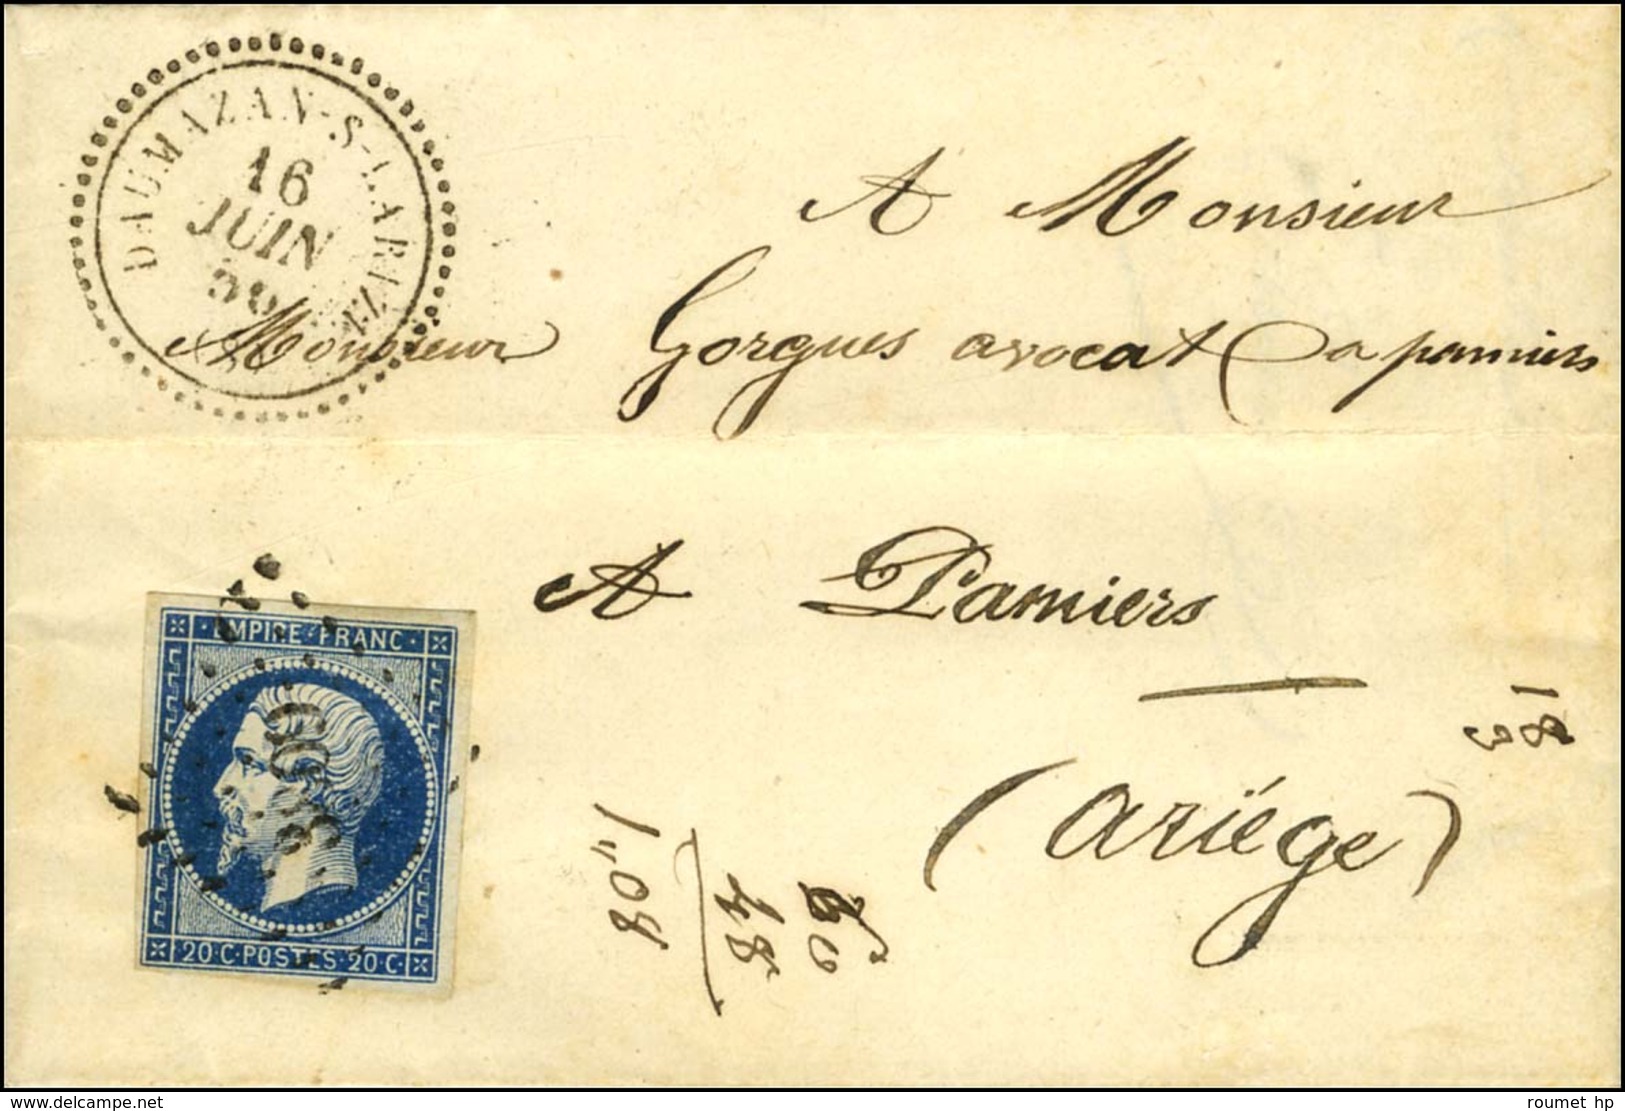 DAUMAZAN-S-LARIZE
16
JUIN
A Monsieur
Monsieur Gorgues avocat a pamiers
A Pamiers
(Ariége)
EMPIRE·FRANC·
20·C·POSTES·20·C·
60
48
1,,08
18
3
delcampe.net
roumet hp